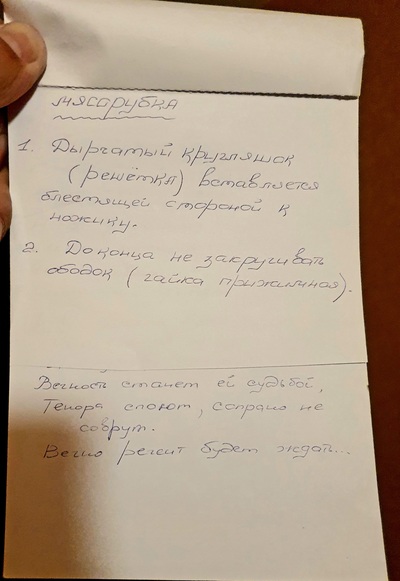 мясорубка
1. Дырчатый кругляшок
(решётка) вставляется
блестящей стороной к
ножику.
2. До конца не закручивать
ободок (гайка прижимная).
Вечность станет ей судьбой,
Тенора споют, сопрано не
соврут.
Вечно будет ждать...